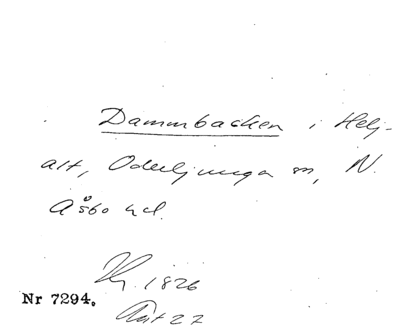 Dammbacken i Helj-
alt, Oderljunga sn, N.
Åsbo hd.
1826
Nr 7294.
27